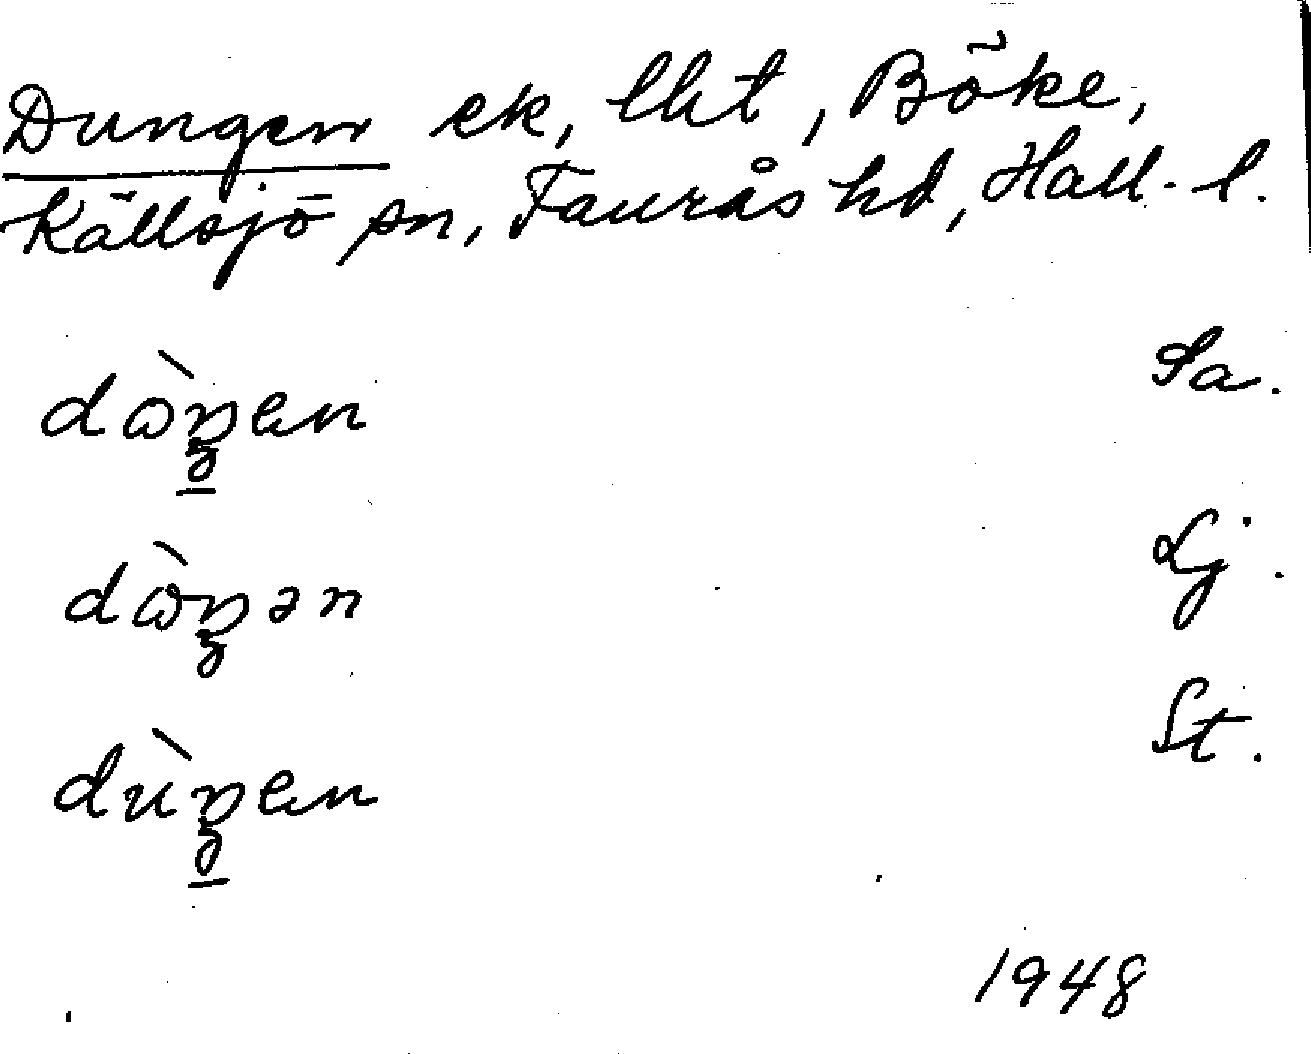 Dungen ek, lht, Böke,
Källsjö sn, Faurås hd, Hall. l.
dὼŋen Sa.
dὼŋən Lj.
dùŋen St.
1948